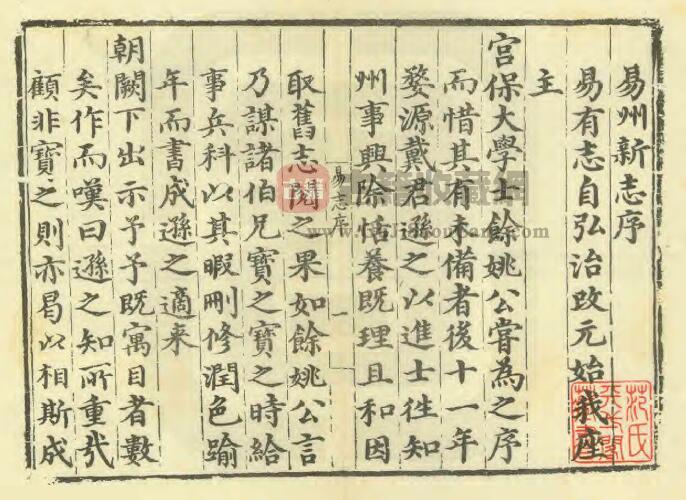 易州新志序
易有志自弘治改元始我座
主
宫保大學士餘姚公嘗為之序
而惜其有未備者後十一年
婺源戴君遜之以進士徃知
州事興除恬養既理且和因
易志序
一
取舊志閱之果如餘姚公言
乃謀諸伯兄寶之寶之時給
事兵科以其暇刪修潤色踰
年而書成遜之適来
朝闕下出示予予既寓目者數
矣作而嘆曰遜之知所重哉
顧非寶之則亦曷以相斯成